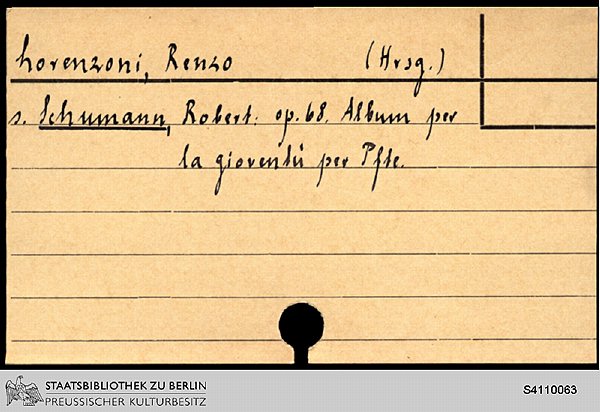 Lorenzoni, Renzo (Hrsg.)
s. Schumann, Robert: op. 68. Album per
la gioventù per Pfte.
STAATSBIBLIOTHEK ZU BERLIN
PREUSSISCHER KULTURBESITZ
S4110063